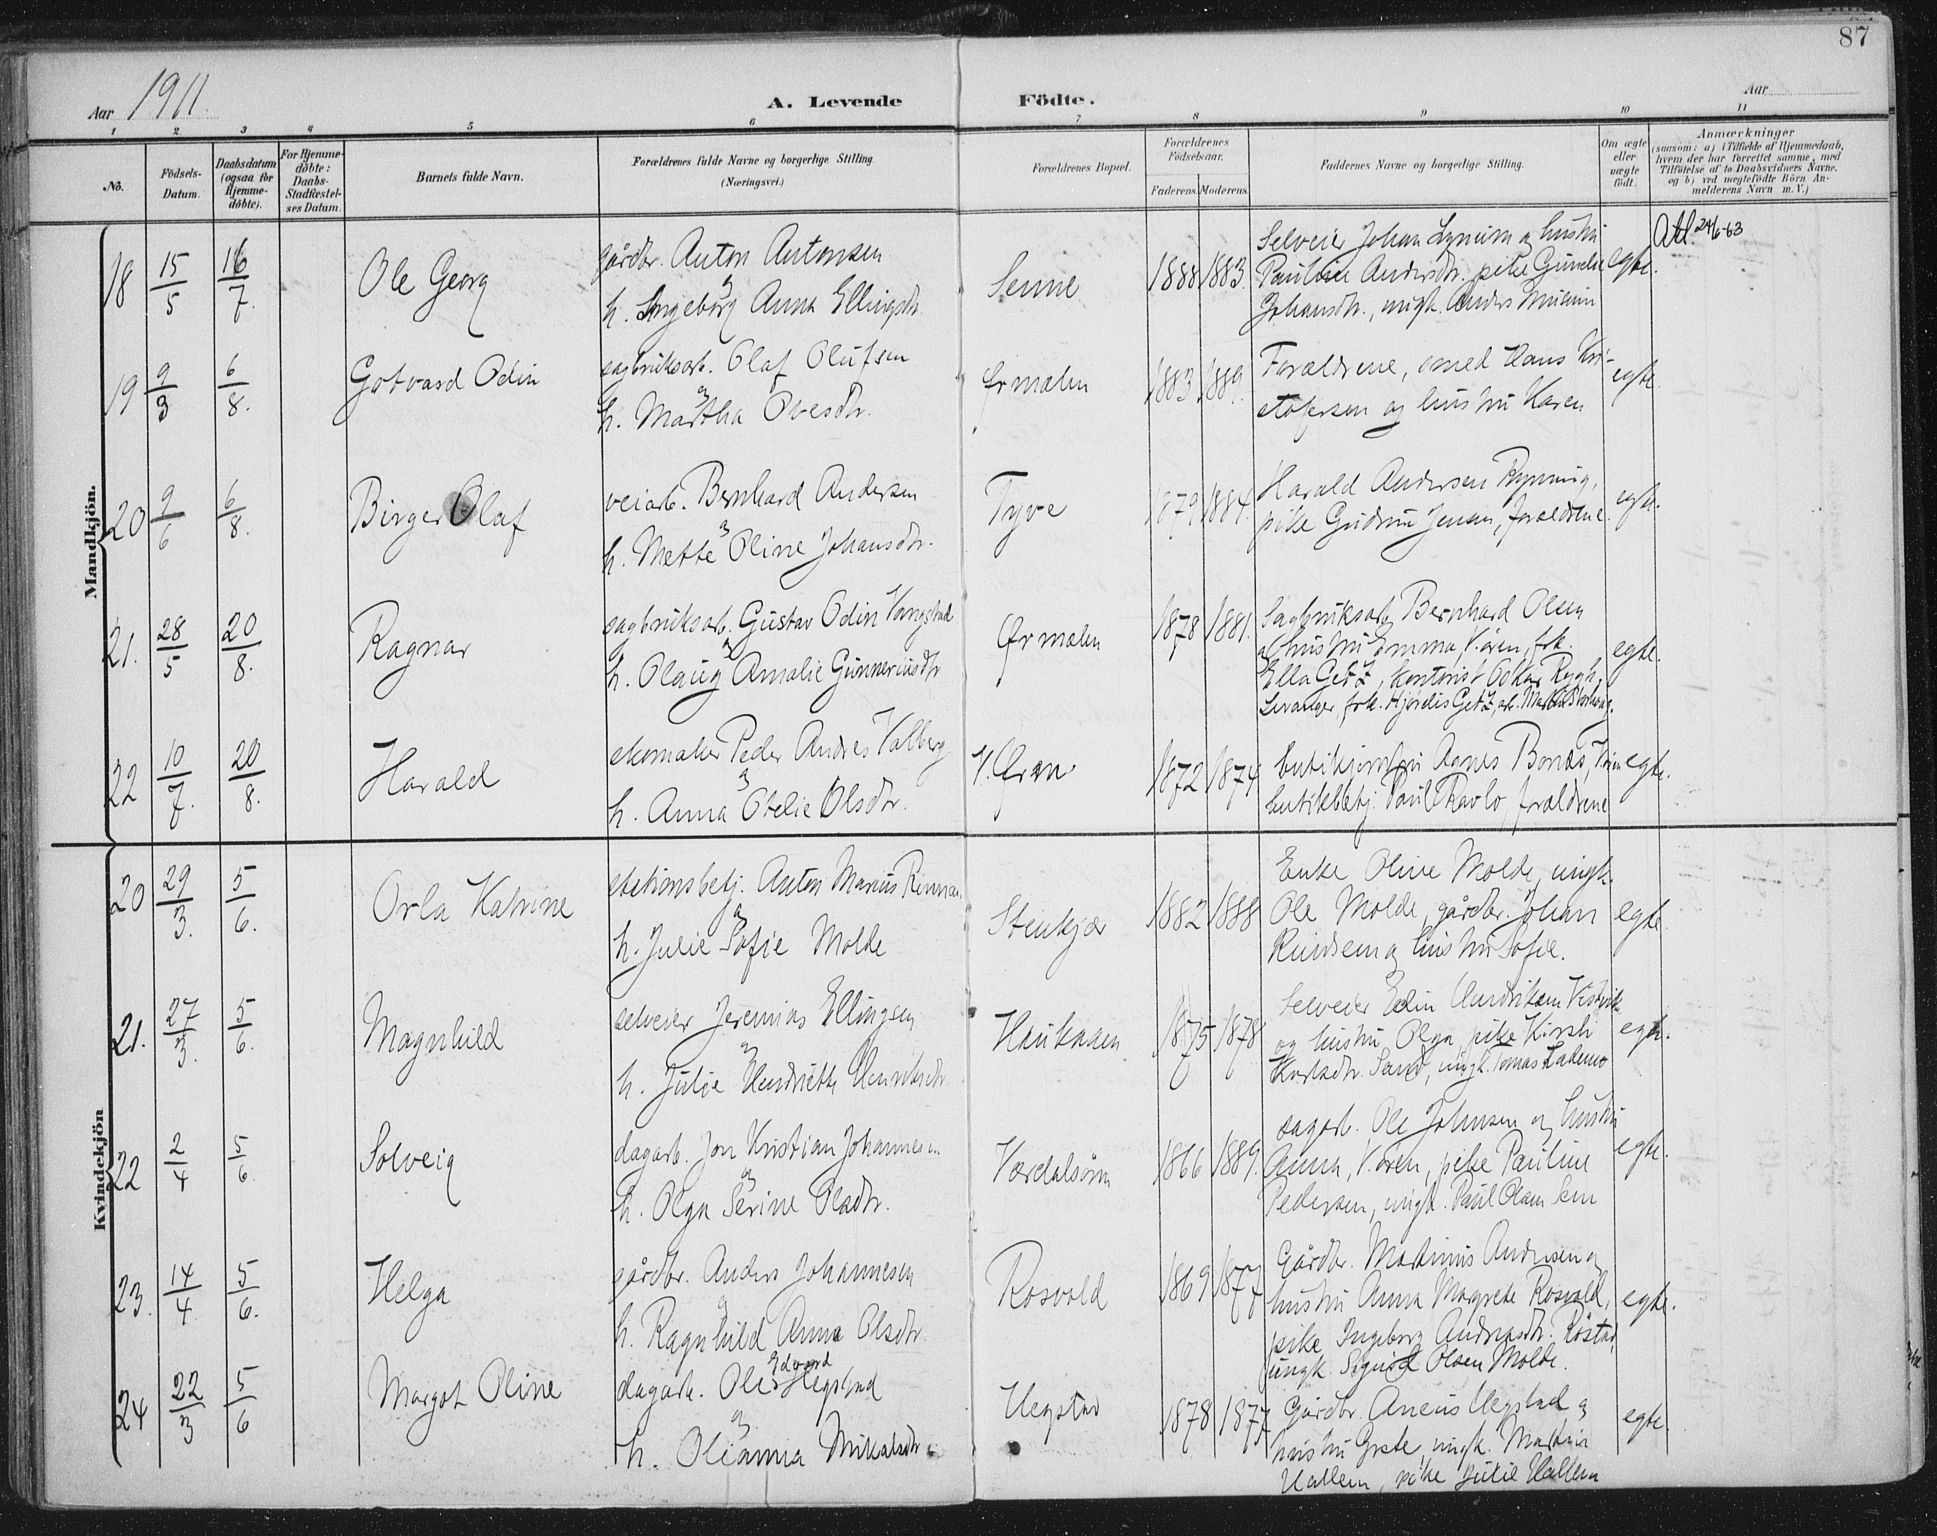 87
Aar 1911.
A. Levende Födte.
Aar
1 2 3 4 5 6 7 8 9 10 11
No.
Födsels-Datum.
Daabsdatum (ogsaa for Hjemme-döbte).
For Hjemme-döbte: Daabs-Stadfæstel-ses Datum.
Barnets fulde Navn.
Forældrenes fulde Navne og borgerlige Stilling. (Næringsvei.)
Forældrenes Bopæl.
Forældrenes Födselsaar.
Faderens. Moderens.
Faddernes Navne og borgerlige Stilling.
Om ægte eller uægte födt.
Anmærkninger
(saasom: a) i Tilfælde af Hjemmedaab,
hvem der har forrettet samme, med
Tilföielse af to Daabsvidners Navne,
og b) ved uægtefödte Börn An-
melderens Navn m. V.)
Mandkjön.
18 15/5 16/7. Ole Georg
gårdbr. Anton Antonsen
h. Ingeborg Anna Ellingsdtr.
Senne 1888 1883.
Selveier Johan Lynum og hustru
Pauline Andersdtr. pike
Johansdtr., ungk. Anders
egte.
Att. 24/6-63
19 9/3 6/8. Gotvard Odin
sagbruksarb. Olaf Olufsen
h. Martha Ovesdtr.
Ørmælen 1883 1889.
Forældrene, smed Hans Kri-
stofersen og hustru Karen
egte.
20 9/6 6/8. Birger Olaf
veiarb. Bernhard Andersen
h. Mette Oline Johansdtr.
Tyve 1879 1884.
Harald Andersen Rynning,
pike Gudrun Jensen, forældrene.
egte.
21. 28/5 20/8. Ragnar
sagbruksarb. Gustav Odin Vangstad
h. Olaug Amalie Gunneriusdtr
Ørmælen 1878 1881.
Sagbruksarb. Bernhard Olsen
og hustru Emma, V.ören, frk.
Ella Getz, kontorist Oskar Rygh,
Levanger, frk. Hjørdis Getz, arb.
egte.
22 10/7. 20/8. Harald
skomaker Peder Andres Valberg
h. Anna Otelie Olsdtr.
V. Øren 1872 1874
Agnes Bonæs, V.ören
butikbetj. Paul Ravlo, forældrene
egte.
Kvindekjön
20 29/3. 5/6. Orla Katrine
stationsbetj. Anton Marius
h. Julie Sofie Molde
Stenkjær 1882 1888
Enke Oline Molde, ungk.
Ole Molde, gårdbr. Johan
og hustru Sofie.
egte.
21. 27/3. 5/6. Magnhild
selveier Jeremias Ellingsen
h. Julie Hendriette Henriksdtr.
Haukaaen 1875 1878
Selveier Edin Hendriksen
og hustru Olga, pike Kirsti
Karlsdtr. Sand, ungk. Tomas Lademo
egte.
22 2/4 5/6. Solveig
dagarb. Jon Kristian Johannesen
h. Olga Serine Olsdtr.
Værdalsøren 1866 1889.
sagarb. Ole Johnsen og hustru
Anna, V.ören, pike Pauline
Pedersen, ungk. Paul Olsen Sem
egte.
23. 14/4. 5/6. Helga
gårdbr. Anders Johannesen
h. Ragnhild Anna Olsdtr.
Rosvold 1869 1877
Gårdbr. Martinus Andersen og
hustru Anna Margrete Rosvold,
pike Ingeborg Andreasdtr.
ungk. Sigurd Olsen Molde.
egte.
24 22/3 5/6 Margot Oline
dagarb. Ole Edvard Hegstad
h. Olianna Mikalsdtr.
Hegstad 1878 1877
Gårdbr. Hegstad og
hustru Grete, ungk. Martin
Hallem, pike Julie Hallem
egte.